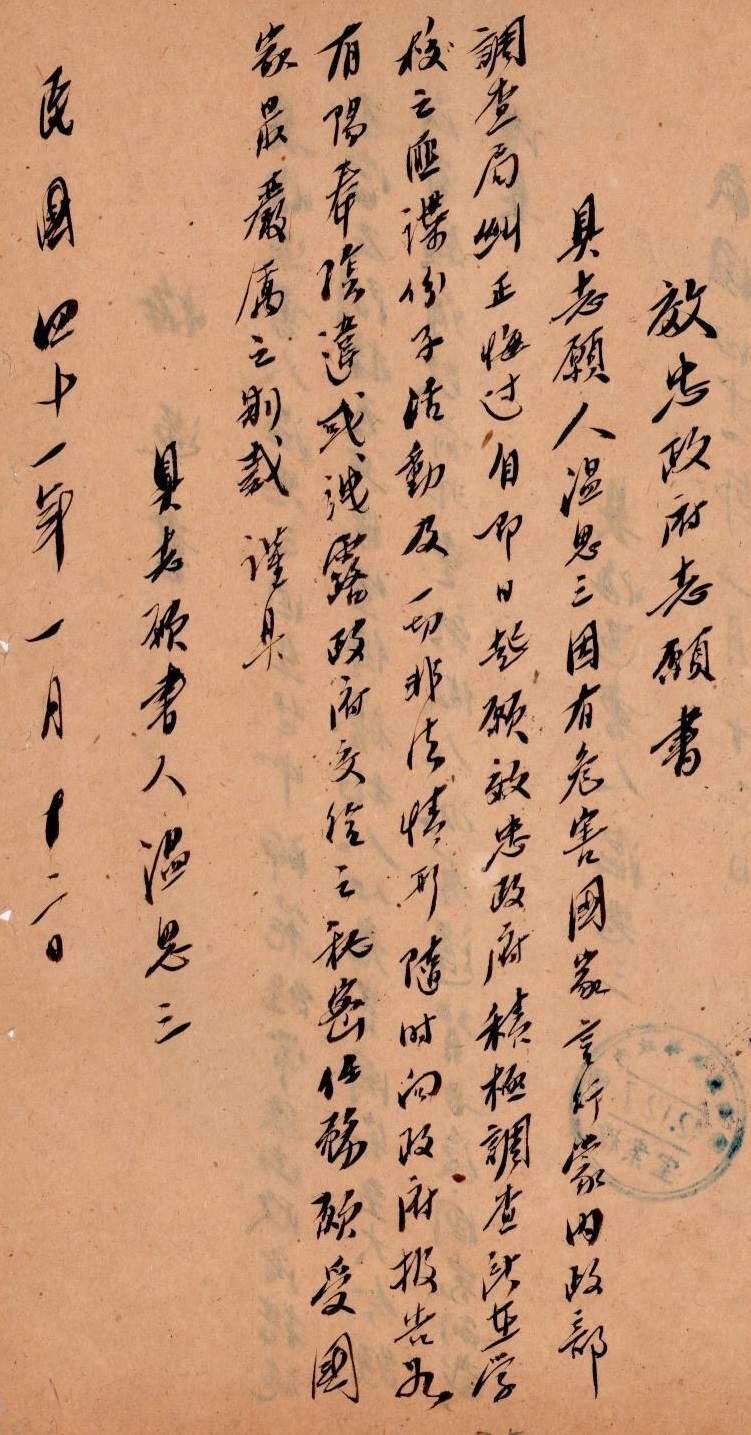 效忠政府志願書
具志願人溫思三因有危害國家言行蒙内政部
調查局糾正悔过自即日起願效忠政府積極調查所在学
校之匪諜份子活動及一切非法情形隨时向政府报告如
有陽奉陰違或洩露政府交給之秘密任務願受國
家最嚴厲之制裁 謹具
具志願書人溫思三
民國四十一年一月十二日